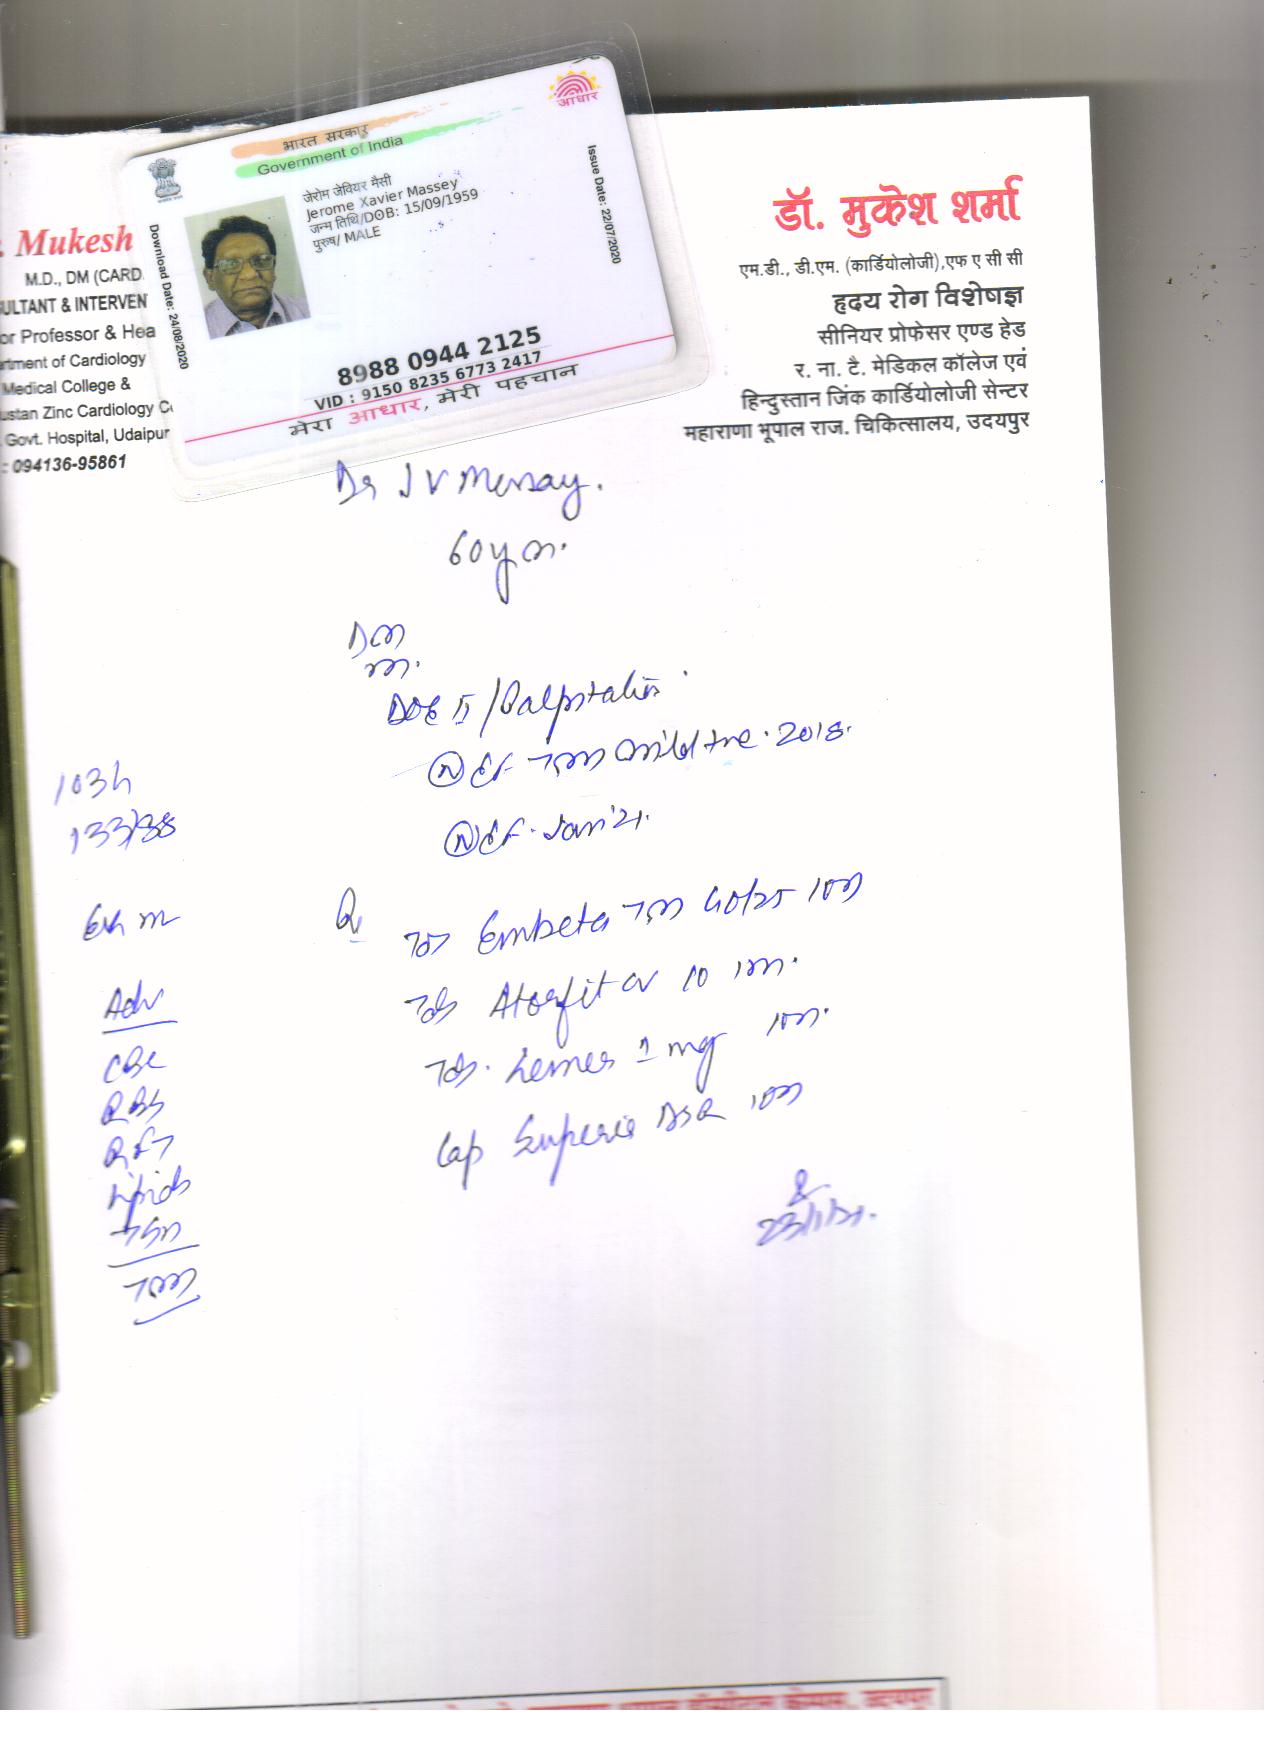 आधार
भारत सरकार
Government of India
जेरोम जेवियर मैसी
Jerome Xavier Massey
जन्म तिथि/DOB: 15/09/1959
पुरुष/ MALE
Issue Date: 22/07/2020
Download Date: 24/08/2020
8988 0944 2125
VID : 9150 8235 6773 2417
मेरा आधार, मेरी पहचान
Mukesh
M.D., DM (CARD
ULTANT & INTERVEN
or Professor & Hea
rtment of Cardiology
Medical College &
ustan Zinc Cardiology C
Govt. Hospital, Udaipur
: 094136-95861
डॉ. मुकेश शर्मा
एम.डी., डी.एम. (कार्डियोलोजी),एफ ए सी सी
हृदय रोग विशेषज्ञ
सीनियर प्रोफेसर एण्ड हेड
र. ना. टै. मेडिकल कॉलेज एवं
हिन्दुस्तान जिंक कार्डियोलोजी सेन्टर
महाराणा भूपाल राज. चिकित्सालय, उदयपुर
Dr J V Massay.
60y m.
DM
DOE II / Palpitation
(N) EF TMT mild +ve. 2018.
(N) EF. Jan'21.
103
133/88
Adv
CBC
RBS
RFT
Lipids
TSH
TMT
Embeta TM 40/25
Atorfit CV 10
1 mg
Cap DSR